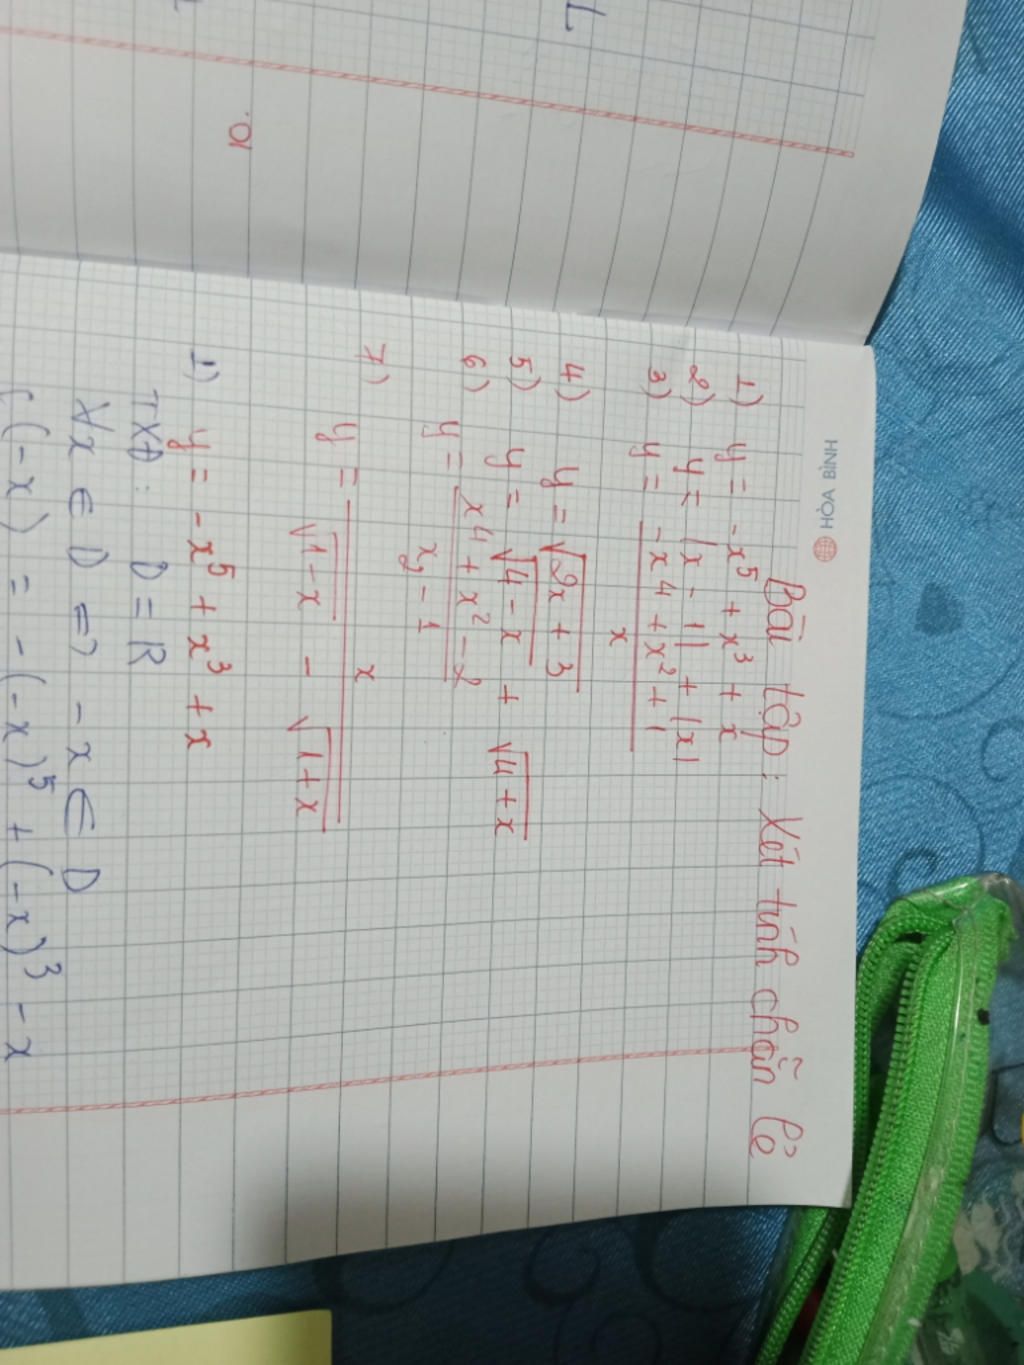 HÒA BÌNH
Bài tập: Xét tính chẵn lẻ
1) y = -x⁵ + x³ + x
2) y = |x - 1| + |x|
3) y = -x⁴ + x² + 1 / x
4) y = √2x + 3
5) y = √4 - x + √4 + x
6) y = x⁴ + x² - 2 / x² - 1
7) y = x / √1-x - √1+x
1) y = -x⁵ + x³ + x
TXĐ: D = R
∀x ∈ D => -x ∈ D
(-x) = -(-x)⁵ + (-x)³ - x